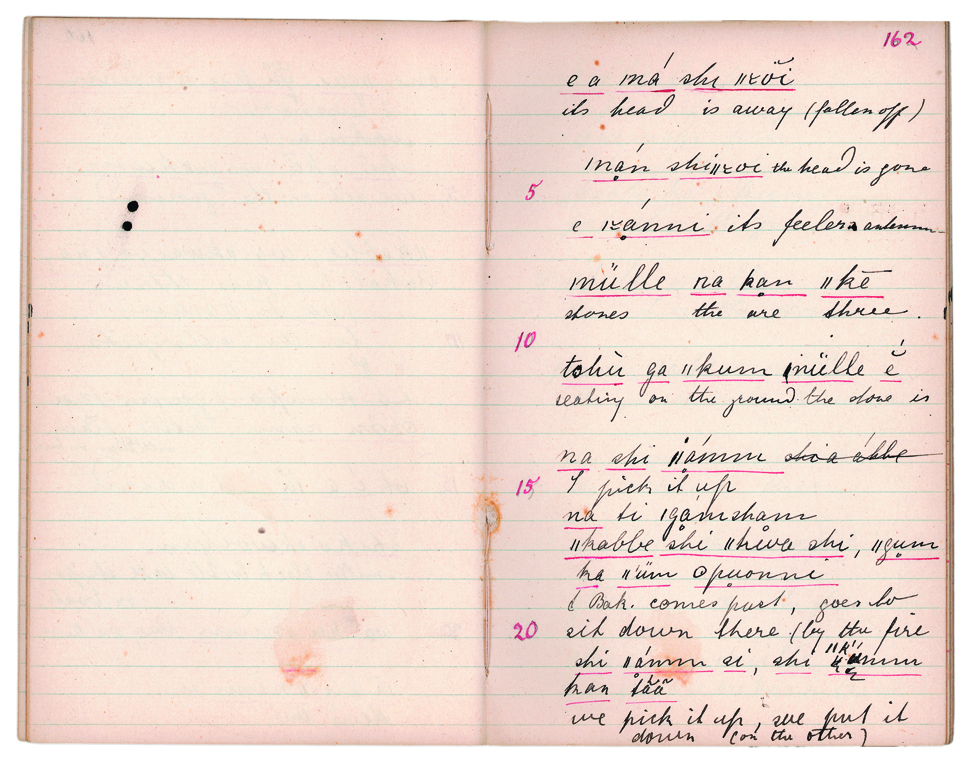 162
e a má shi ǁzoi
its head is away (fallen off)
mạn shi ǁzoi the head is gone
5
e ǀzánni its feelers antennæ
mülle na kan ǁkē
stones the are three.
10
tshù ga ǁkum mülle ĕ
seating on the ground the stone is
na shi ǁámm
15
I pick it up
na ti ǀgámsham
ǁkabbe shi ǁhiwa shi, ǁgum
ka ǁüm
Bok. comes past, goes to
20
sit down there (by the fire
shi ǁámm si, shi
kan
we pick it up, we put it
down (on the other)